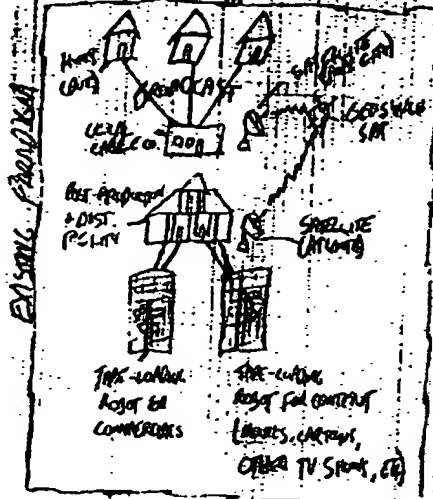 EXISTING PARADIGM
BROADCAST
LOCAL
CABLE CO.
SAT
POST-PRODUCTION
& DIST.
FACILITY
SATELLITE
(ATLANTA)
TAPE-LOADING
ROBOT FOR
COMMERCIALS
TAPE-LOADING
ROBOT FOR CONTENT
(MOVIES, CARTOONS,
OTHER TV SHOWS, ETC)